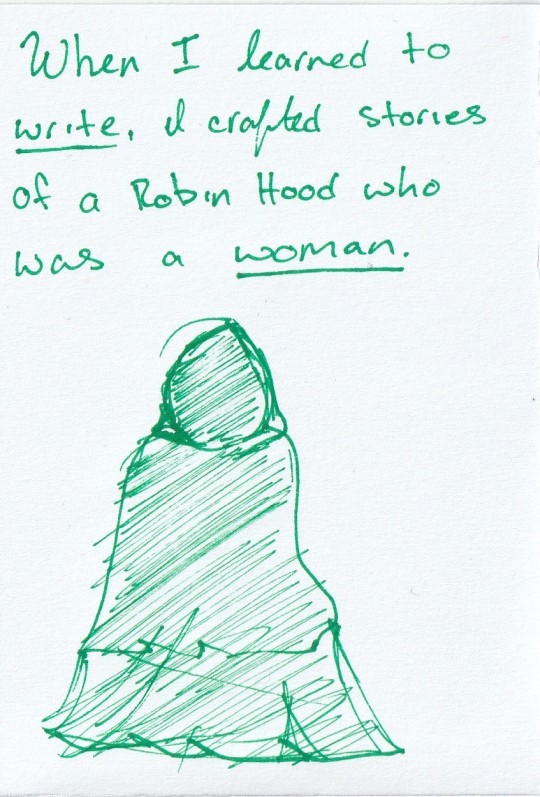 When I learned to
write, I crafted stories
of a Robin Hood who
was a woman.